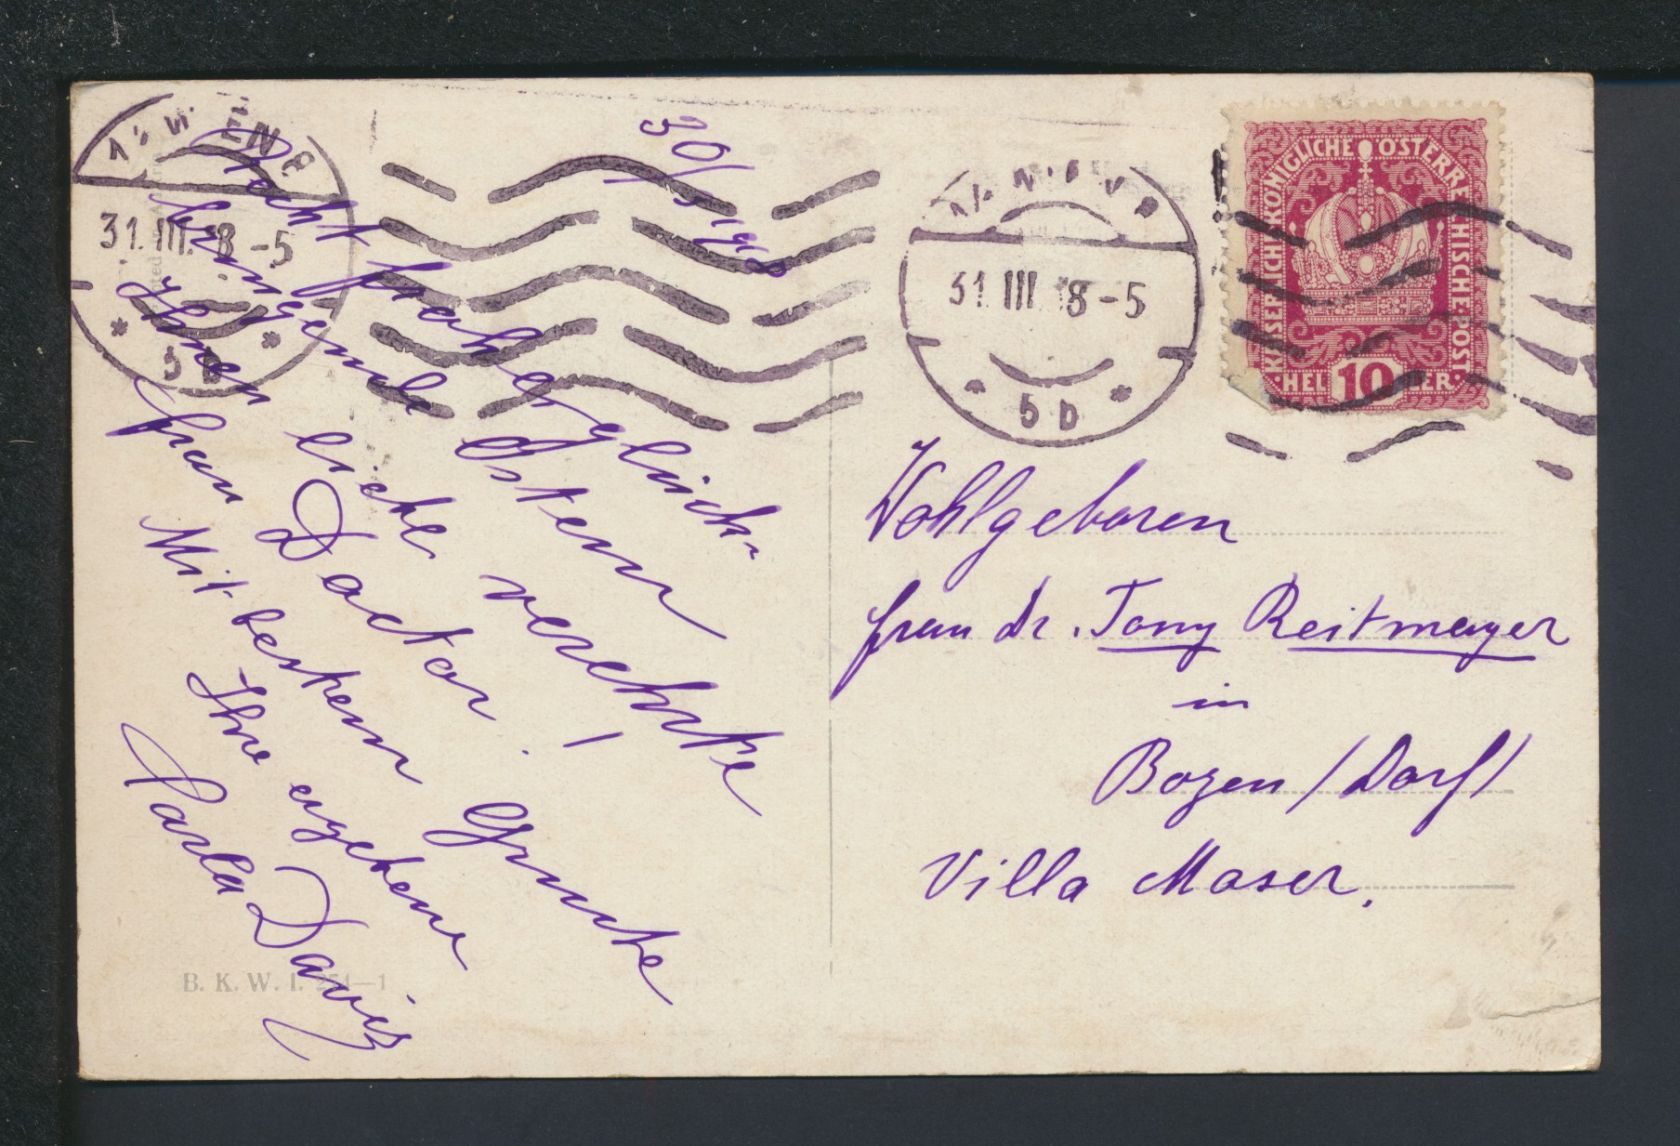 30/3 1918
Recht froh & glück-
bringende Ostern
Ihnen liebe verehrte
Frau Doctor!
Mit besten Grüsse
Ihre ergebene
Carla Davis
B. K. W. I. 251—1
31. III. 18-5
* 5 b *
31. III. 18-5
* 5 b *
KAISERLICH KÖNIGLICHE ÖSTERREICHISCHE POST
HELLER
10
Wohlgeboren
Frau Dr. Tony Reitmayer
in
Bozen /Dorf/
Villa Maser.